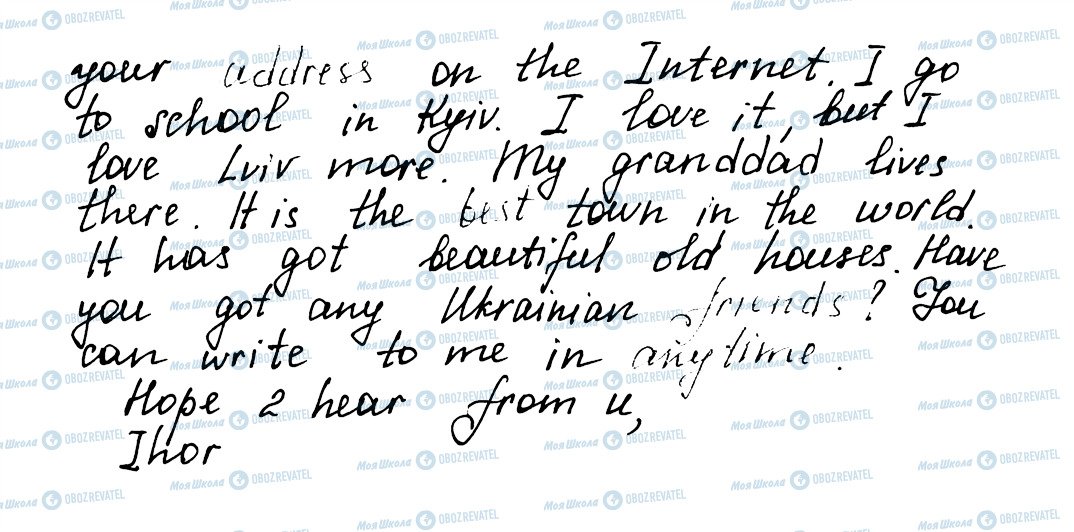 your address on the Internet. I go
to school in Kyiv. I love it, but I
love Lviv more. My granddad lives
there. It is the best town in the world.
It has got beautiful old houses. Have
you got any Ukrainian friends? You
can write to me in anytime.
Hope 2 hear from u,
Ihor